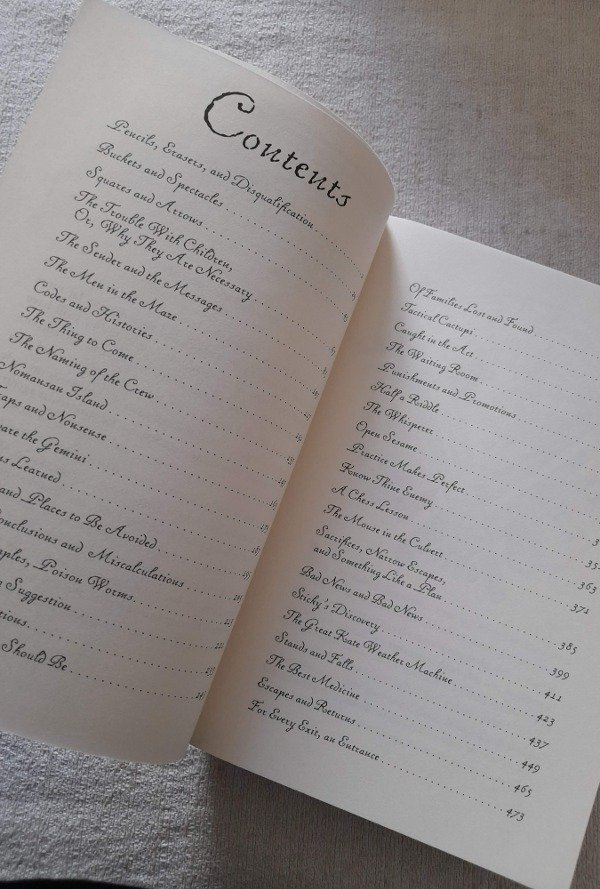 Contents
Pencils, Erasers, and Disqualification
Buckets and Spectacles
Squares and Arrows
The Trouble With Children,
Or, Why They Are Necessary
The Sender and the Messages
The Men in the Maze
Codes and Histories
The Thing to Come
The Naming of the Crew
Nomansan Island
and Nonsense
the Gemini
Learned
and Places to Be Avoided
and Miscalculations
Poison Worms
Suggestion
Should Be
Of Families Lost and Found
Tactical Cactupi
Caught in the Act
The Waiting Room
Punishments and Promotions
Half a Riddle
The Whisperer
Open Sesame
Practice Makes Perfect
Know Thine Enemy
A Chess Lesson 363
The Mouse in the Culvert 371
Sacrifices, Narrow Escapes,
and Something Like a Plan 385
Bad News and Bad News 399
Sticky's Discovery 411
The Great Kate Weather Machine 423
Stands and Falls 437
The Best Medicine 449
Escapes and Returns 465
For Every Exit, an Entrance 473